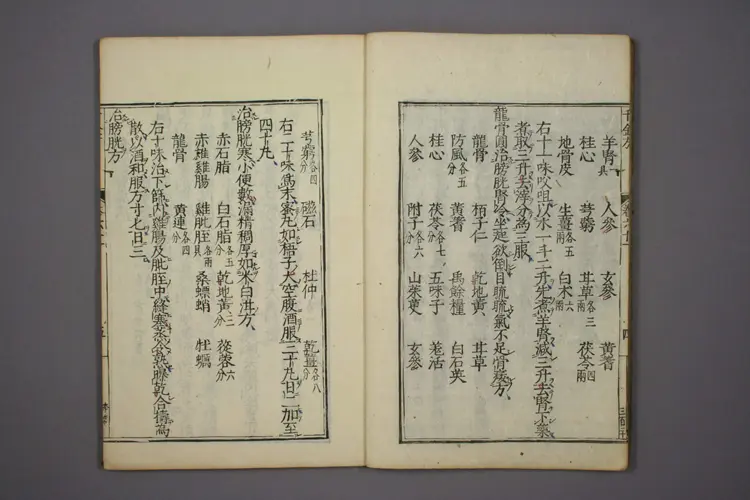 羊腎具 人參 玄參 黃耆
桂心 芎藭 甘草各三兩 茯苓四兩
地骨皮 生薑各五兩 白术六兩
右十一味㕮咀以水一斗二升先煮羊腎減三升去腎下藥
者取三升去滓分為三服
龍骨圓治膀胱腎冷坐起欲倒目䀮䀮氣不足骨痿方
龍骨 柏子仁 乾地黃 甘草
防風各五分 黃耆 禹餘糧 白石英
桂心 茯苓各七分 五味子 羌活
人參 附子各六分 山茱萸 玄參
芎藭各四分 磁石 杜仲 乾薑各八分
右二十味為末蜜丸如梧子大空腹酒服三十九日二加至
四十九
治膀胱寒小便數漏精稠厚如米白泔方
赤石脂 白石脂各五分 乾地黃三分 蓯蓉六分
赤雄雞腸 雞胵胵各兩 桑螵蛸 牡蠣
龍骨 黃連各四分
右十味治下篩內雞腸及胵胵中縫塞蒸令熟曝乾合擣為
散以酒和服方寸匕日三
治膀胱方